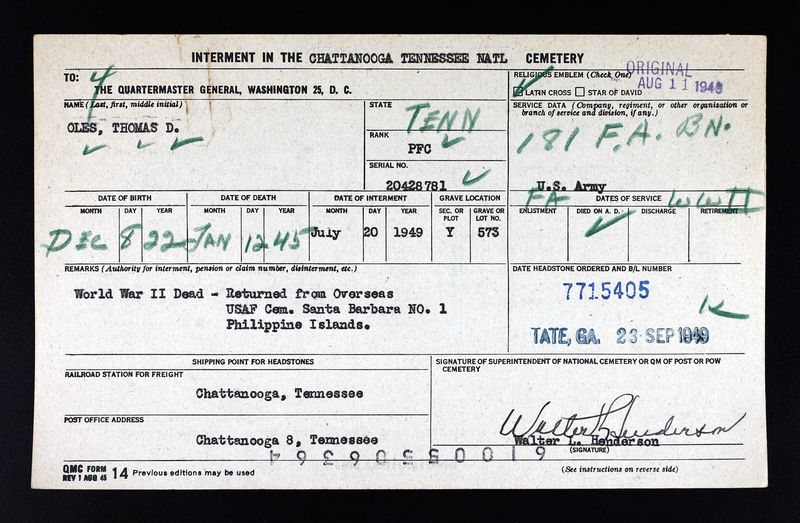 INTERMENT IN THE CHATTANOOGA TENNESSEE NATL CEMETERY
TO: 4
THE QUARTERMASTER GENERAL, WASHINGTON 25, D. C.
RELIGIOUS EMBLEM (Check One)
LATIN CROSS STAR OF DAVID
ORIGINAL
AUG 11 1949
NAME (Last, first, middle initial)
OLES, THOMAS D.
STATE
TENN
RANK
PFC
SERIAL NO.
20428781
SERVICE DATA (Company, regiment, or other organization or
branch of service and division, if any.)
181 F.A. BN.
U.S. Army
FA
WW II
DATE OF BIRTH DATE OF DEATH DATE OF INTERMENT GRAVE LOCATION DATES OF SERVICE
MONTH DAY YEAR MONTH DAY YEAR MONTH DAY YEAR SEC. OR PLOT GRAVE OR LOT NO. ENLISTMENT DIED ON A. D. DISCHARGE RETIREMENT
DEC 8 22 JAN 12 45 July 20 1949 Y 573
REMARKS (Authority for interment, pension or claim number, disinterment, etc.)
World War II Dead - Returned from Overseas
USAF Cem. Santa Barbara NO. 1
Philippine Islands.
DATE HEADSTONE ORDERED AND B/L NUMBER
7715405
TATE, GA. 23 SEP 1949
SHIPPING POINT FOR HEADSTONES
RAILROAD STATION FOR FREIGHT
Chattanooga, Tennessee
POST OFFICE ADDRESS
Chattanooga 8, Tennessee
SIGNATURE OF SUPERINTENDENT OF NATIONAL CEMETERY OR QM OF POST OR POW
CEMETERY
Walter L. Henderson
Walter L. Henderson
(SIGNATURE)
QMC FORM
REV 1 AUG 45 14 Previous editions may be used
(See instructions on reverse side)